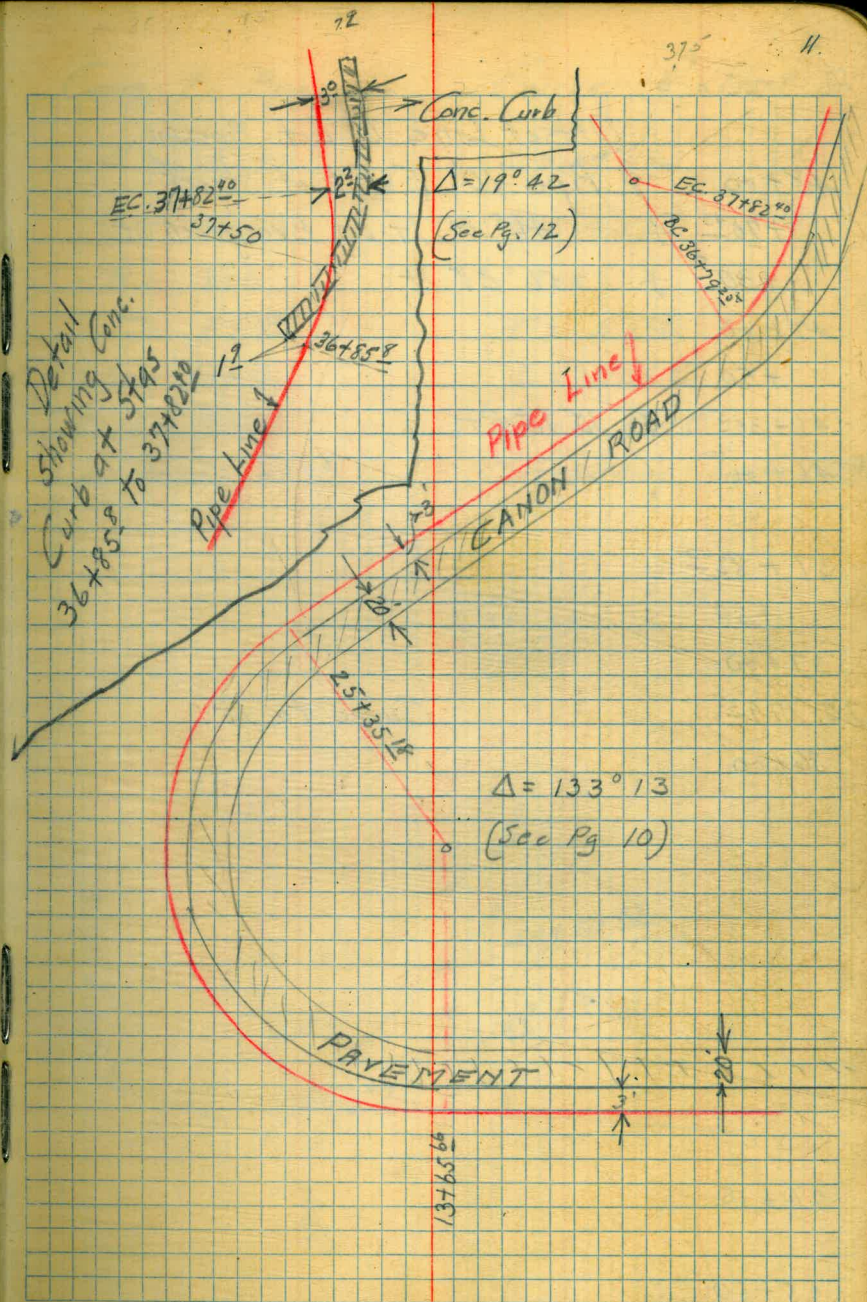 7.2
375
11.
3º
Conc. Curb
EC. 37+82⁴⁰
2²
37+50
Δ = 19° 42
(See Pg. 12)
EC. 37+82⁴⁰
BC 36+79²⁰⁴
Detail
Showing Conc.
Curb at Stas
36+85⁸ to 37+82⁴⁰
1⁹
36+85⁸
Pipe Line
Pipe Line
3'
CANON ROAD
20'
25+35¹⁸
Δ = 133° 13
(See Pg 10)
PAVEMENT
20'
3'
13+65⁶⁶